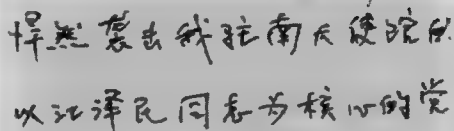 悍然袭击我驻南大使馆的
以江泽民同志为核心的党